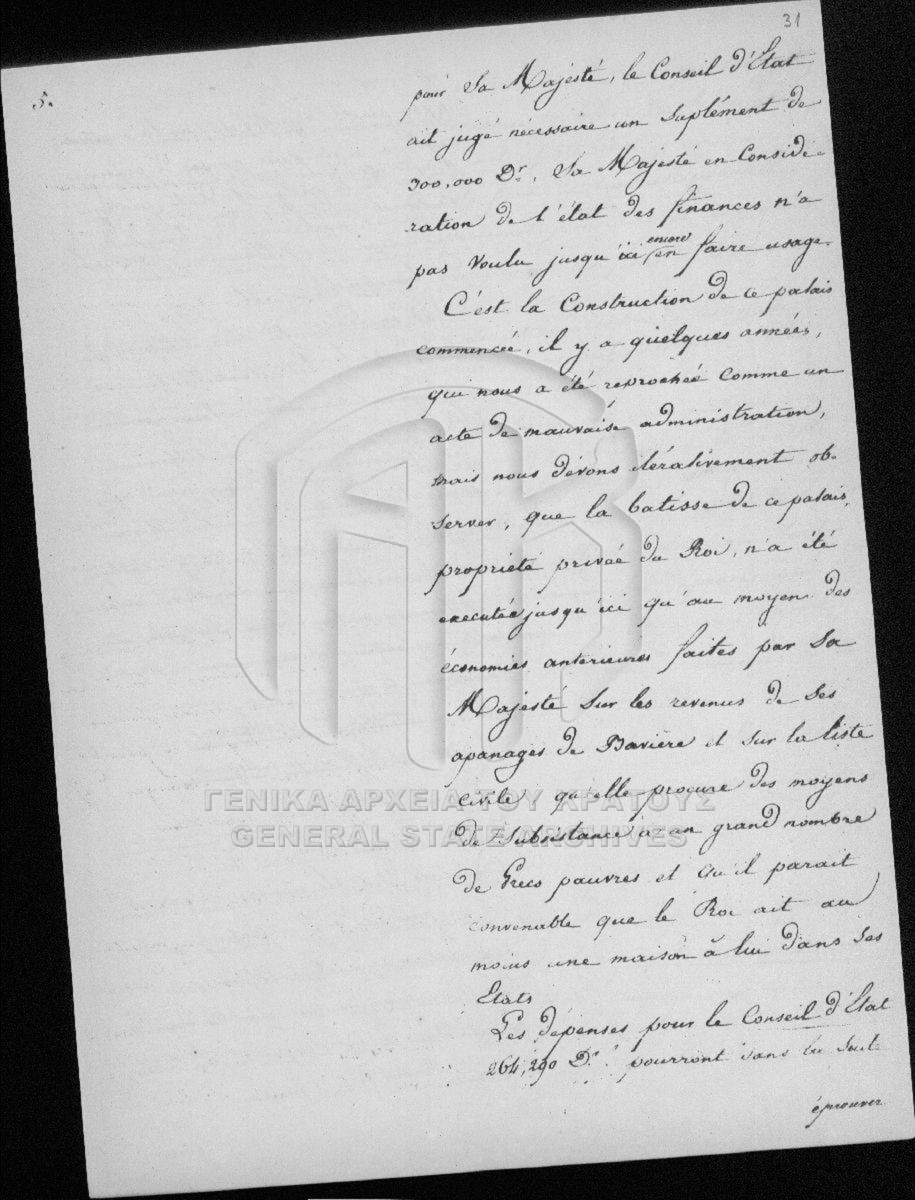 31
5.
pour Sa Majesté, le Conseil d'Etat
ait jugé nécessaire un suplément de
300,000 Dr. Sa Majesté en Considé-
ration de l'état des finances n'a
pas voulu jusqu'ici encore en faire usage.
C'est la Construction de ce palais
commenceé, il y a quelques années,
qui nous a été reprocheé comme un
acte de mauvaise administration,
mais nous dévons itérativement ob-
server, que la batisse de ce palais,
propriété privée du Roi, n'a été
executée jusqu'ici qu'au moyen des
économies antérieures faites par Sa
Majesté sur les revenus de ses
apanages de Bavière et sur la liste
civile qu'elle procure des moyens
de subsistance à un grand nombre
de Grecs pauvres et qu'il parait
convenable que le Roi ait au
moins une maison à lui dans ses
Etats
Les dépenses pour le Conseil d'Etat
264,290 Dr. pourront dans la suite
éprouver
ΓΕΝΙΚΑ ΑΡΧΕΙΑ ΤΟΥ ΚΡΑΤΟΥΣ
GENERAL STATE ARCHIVES